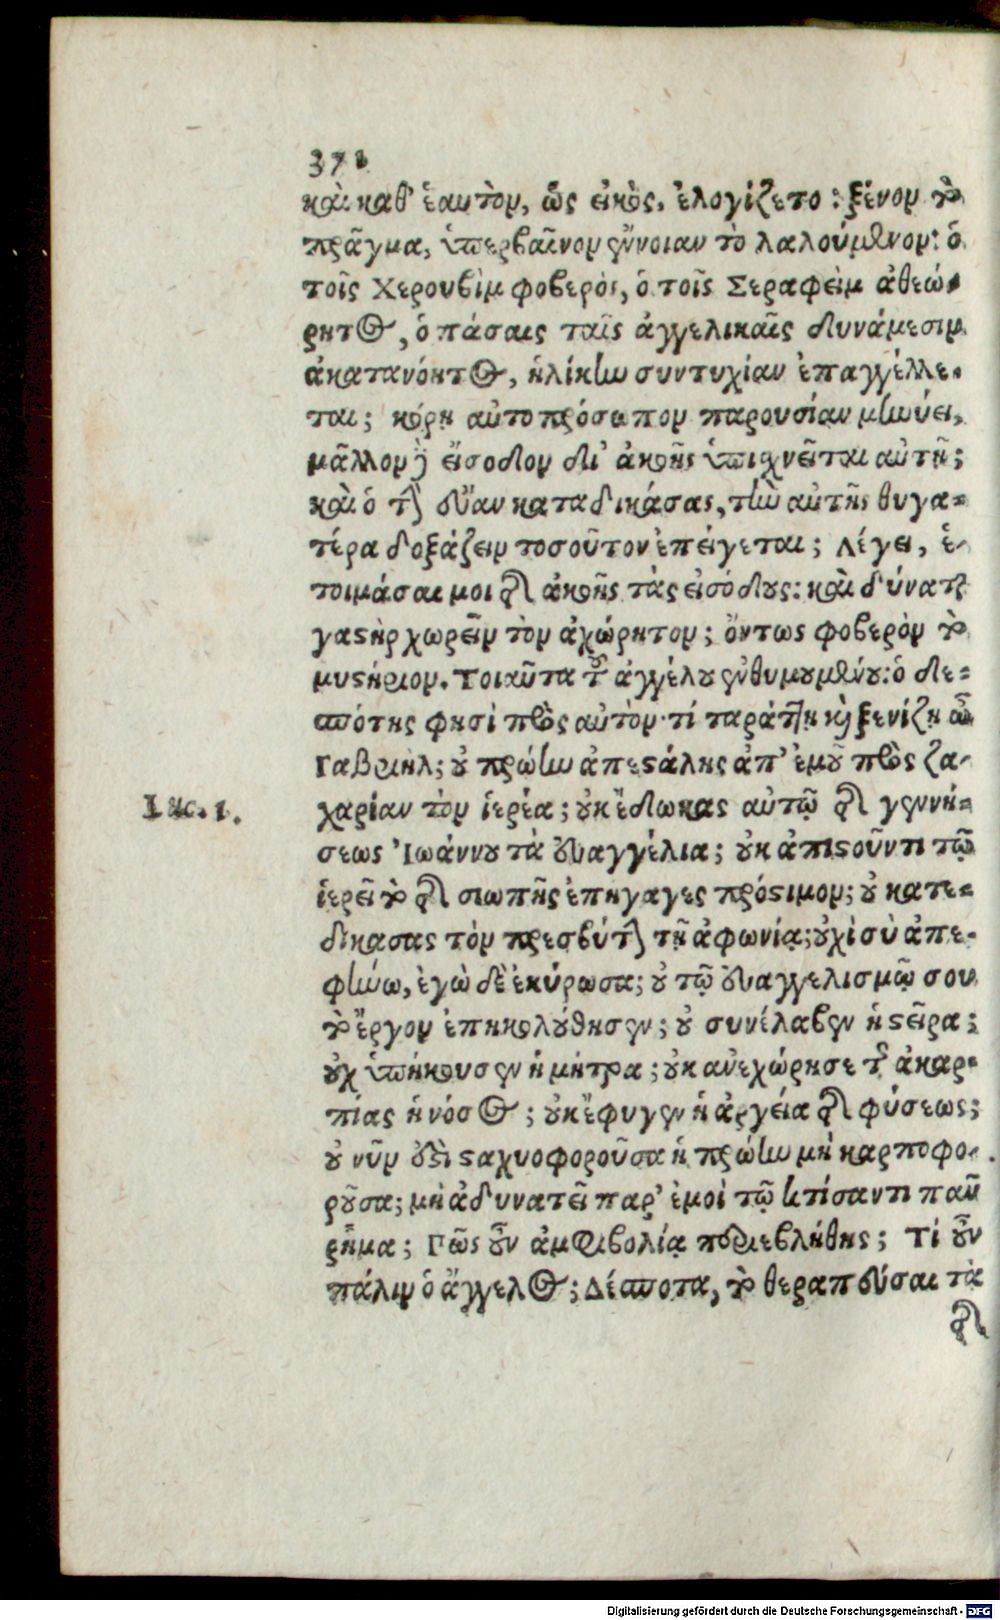 372
καὶ καθ' ἑαυτὸν, ὡς εἰκὸς, ἐλογίζετο: ξένον τὸ
πρᾶγμα, ὑπερβαῖνον ἔννοιαν τὸ λαλούμενον: ὁ
τοῖς Χερουβὶμ φοβερὸς, ὁ τοῖς Σεραφεὶμ ἀθεώ-
ρητος, ὁ πάσαις ταῖς ἀγγελικαῖς δυνάμεσιν
ἀκατανόητος, ἡλίκην συντυχίαν ἐπαγγέλλε-
ται; κόρῃ αὐτοπρόσωπον παρουσίαν μηνύει,
μᾶλλον δὲ εἴσοδον δι' ἀκοῆς ὑπισχνεῖται αὐτῇ;
καὶ ὁ τὴν εὔαν καταδικάσας, τὴν αὐτῆς θυγα-
τέρα δοξάζειν τοσοῦτον ἐπείγεται; λέγει, ἑ-
τοιμάσαι μοι τῆς ἀκοῆς τὰς εἰσόδους: καὶ δύναται
γαστὴρ χωρεῖν τὸν ἀχώρητον; ὄντως φοβερὸν τὸ
μυστήριον. Τοιαῦτα τοῦ ἀγγέλου ἐνθυμουμένου: ὁ δε-
σπότης φησὶ πρὸς αὐτὸν· τί ταράττῃ καὶ ξενίζῃ ὦ
Γαβριήλ; οὐ πρώην ἀπεστάλης ἀπ' ἐμοῦ πρὸς ζα-
χαρίαν τὸν ἱερέα; οὐκ ἔδωκας αὐτῷ τῆς γεννή-
Luc. 1.
σεως Ἰωάννου τὰ εὐαγγέλια; οὐκ ἀπιστοῦντι τῷ
ἱερεῖ τὸ τῆς σιωπῆς ἐπήγαγες πρόστιμον; οὐ κατε-
δίκασας τὸν πρεσβύτην τῇ ἀφωνίᾳ; οὐχὶ σὺ ἀπε-
φήνω, ἐγὼ δὲ ἐκύρωσα; οὐ τῷ εὐαγγελισμῷ σου
τὸ ἔργον ἐπηκολούθησεν; οὐ συνέλαβεν ἡ στεῖρα;
οὐχ ὑπήκουσεν ἡ μήτρα; οὐκ ἀνεχώρησε τῆς ἀκαρ-
πίας ἡ νόσος; οὐκ ἔφυγεν ἡ ἀργεία τῆς φύσεως;
οὐ νῦν ἐστι σταχυοφοροῦσα ἡ πρώην μὴ καρποφο-
ροῦσα; μὴ ἀδυνατεῖ παρ' ἐμοὶ τῷ κτίσαντι πᾶν
ῥῆμα; Πῶς οὖν ἀμφιβολίᾳ περιεβλήθης; Τί οὖν
πάλιν ὁ ἄγγελος; Δέσποτα, τὸ θεραπεῦσαι τὰ
τῆς
Digitalisierung gefördert durch die Deutsche Forschungsgemeinschaft - DFG